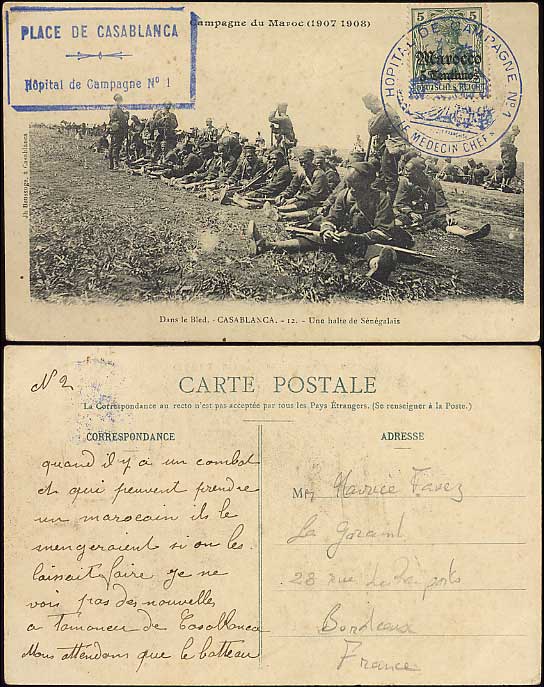 PLACE DE CASABLANCA
Hôpital de Campagne Nº 1
Campagne du Maroc (1907 1908)
5 5
Marocco
5 Centimos
DEUTSCHES REICH
HOPITAL DE CAMPAGNE Nº 1
LE MEDECIN CHEF
à Casablanca
Dans le Bled. - CASABLANCA. - 12. - Une halte de Sénégalais
N 2
CARTE POSTALE
La Correspondance au recto n'est pas acceptée par tous les Pays Étrangers. (Se renseigner à la Poste.)
CORRESPONDANCE
ADRESSE
quand il y a un combat
et qui peuvent prendre
un marocain ils le
mengeraient si on les
laissait faire je ne
vois pas des nouvelles
a de Casablanca
Nous attendons que le batteau
M Maurice Favez
La
28 rue
Bordeaux
France